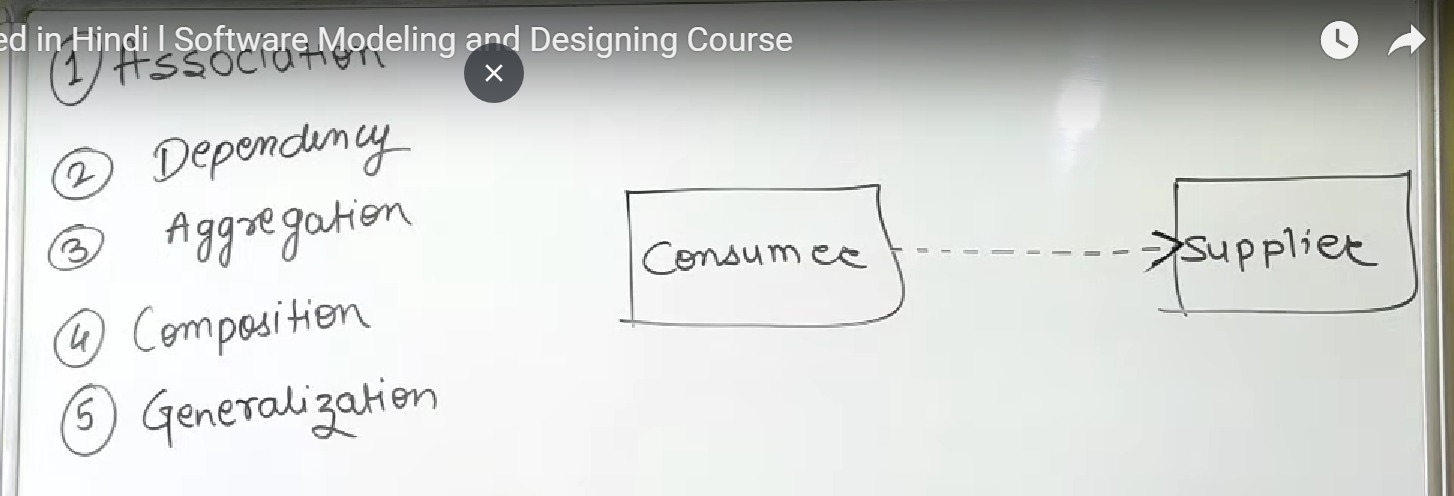 ed in Hindi | Software Modeling and Designing Course
① Association
② Dependency
③ Aggregation
④ Composition
⑤ Generalization
Consumer
Supplier